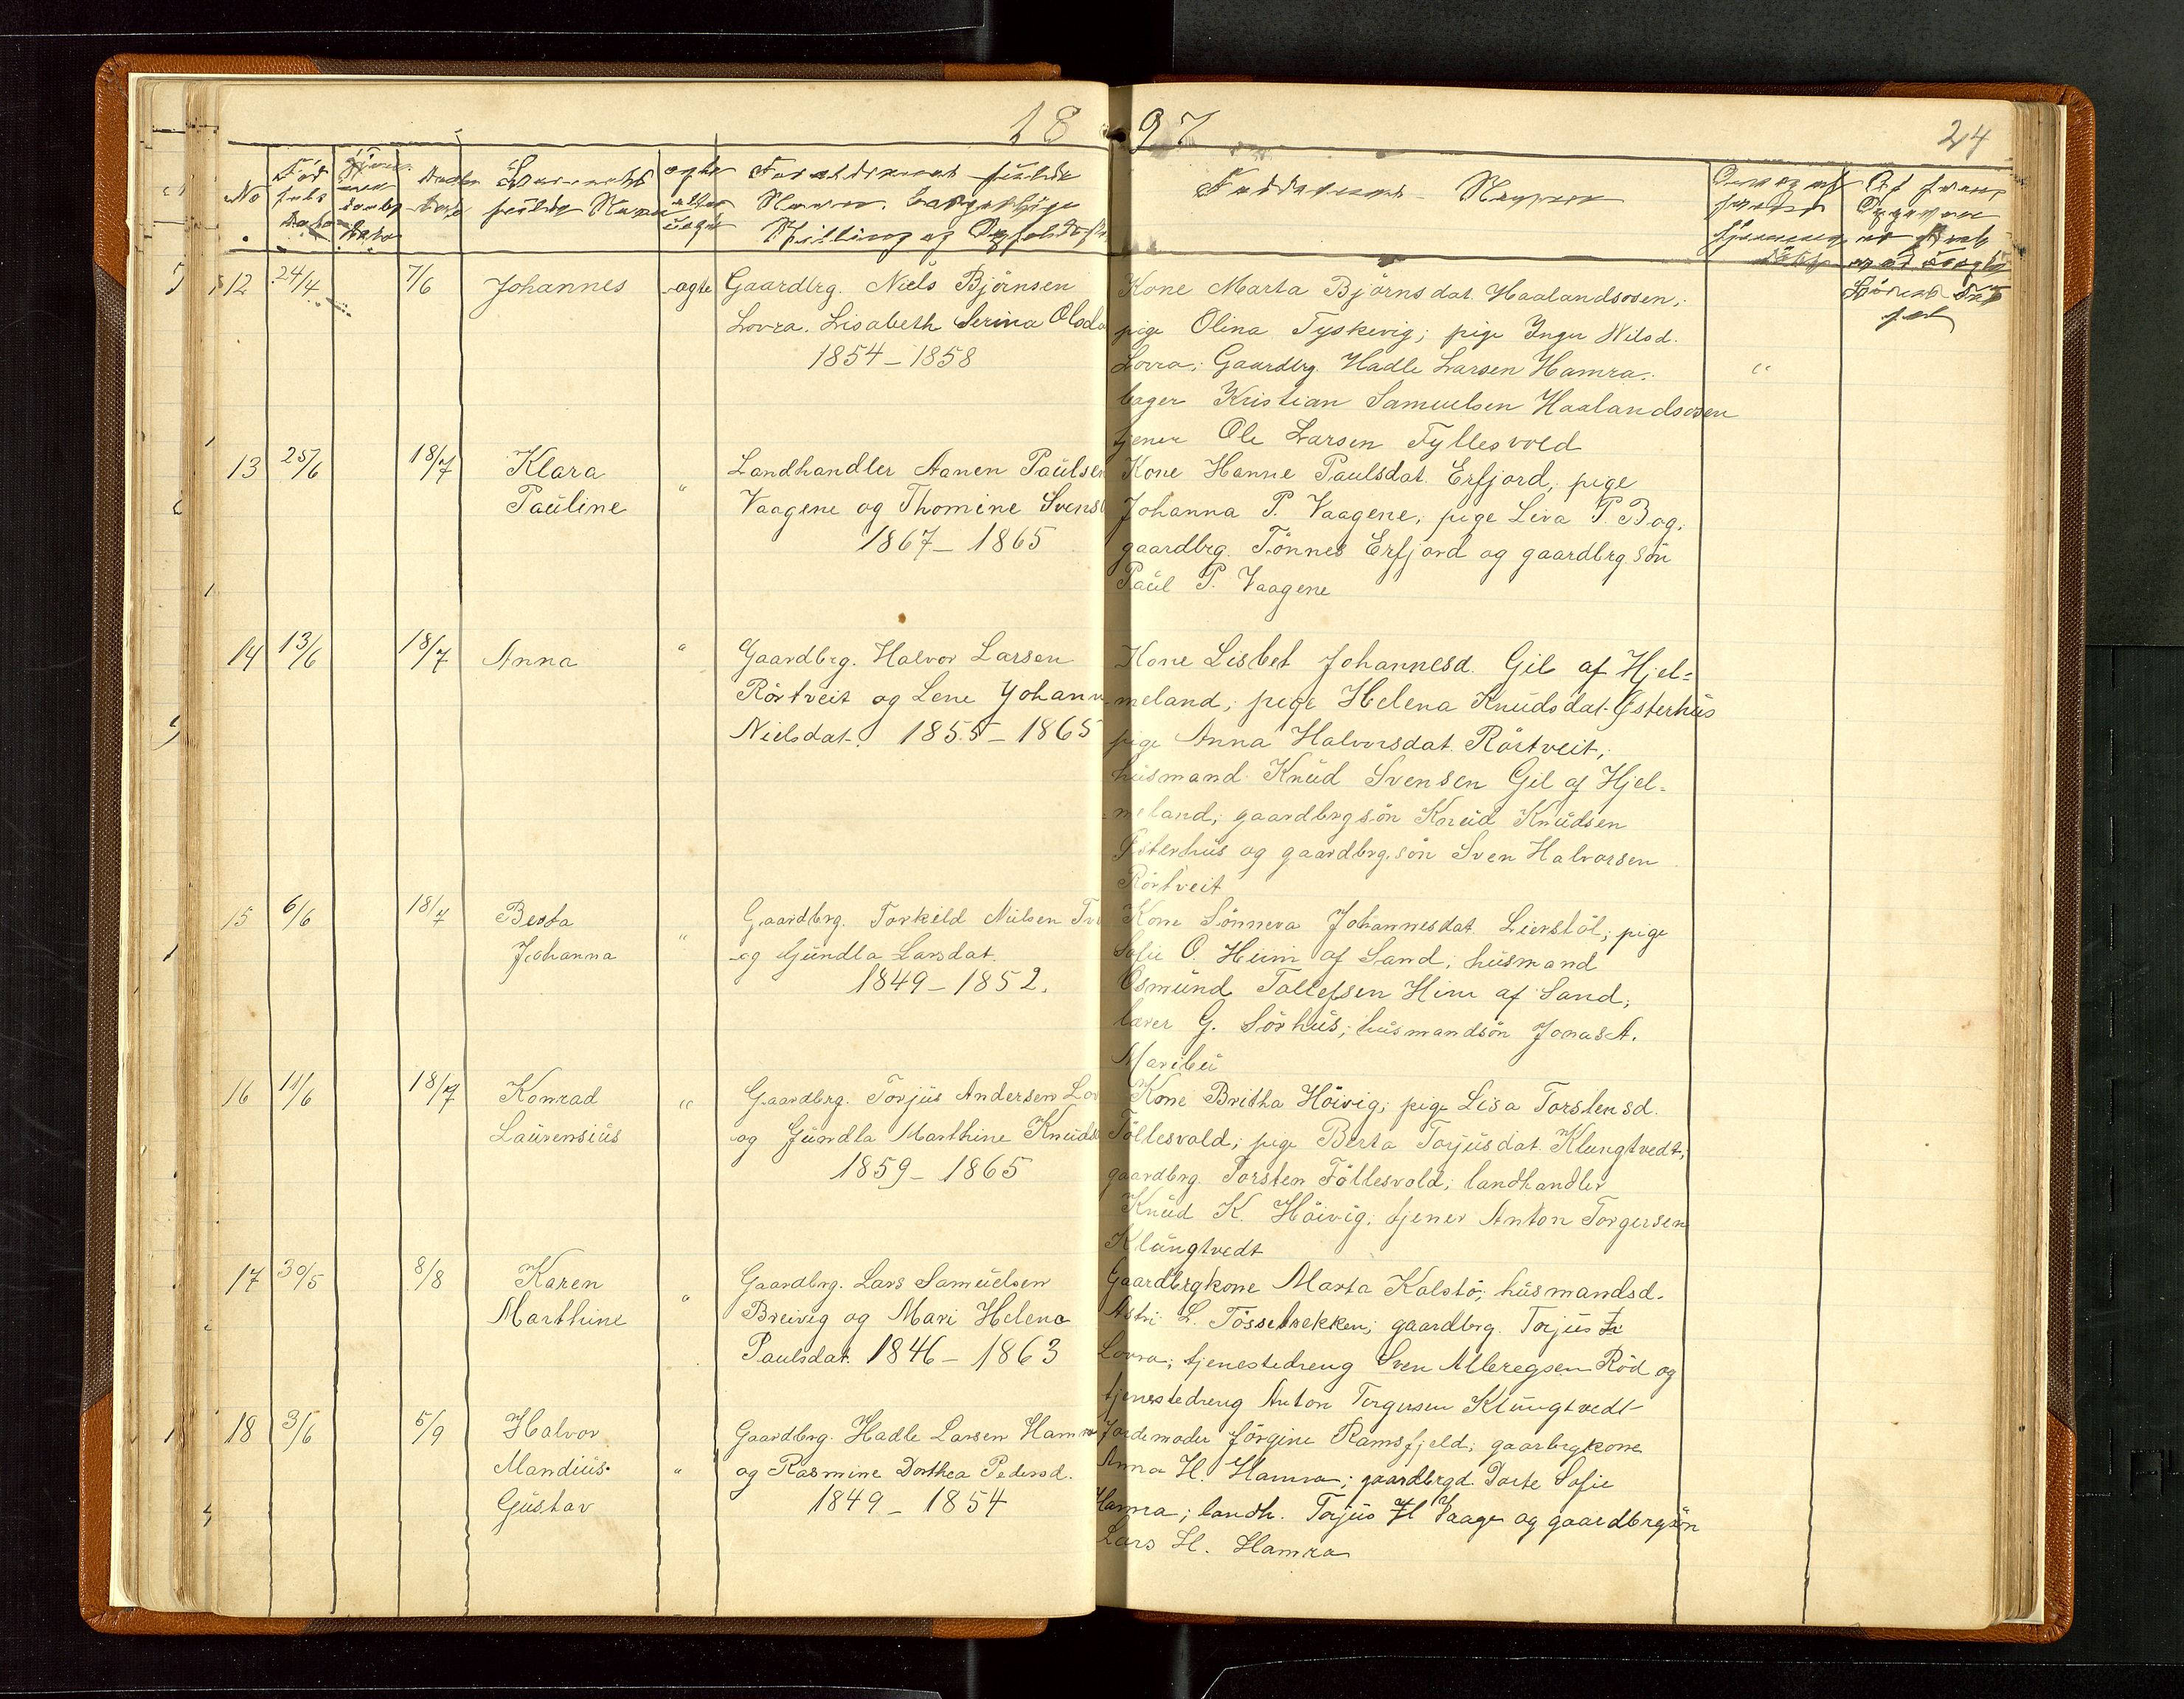 18 97
24
No
Faddernes Navne
12 24/4 7/6 Johannes ægte Gaardbrg. Niels Bjørnsen
Lovra. Lisabeth Serina Olsda
1854 - 1858
Kone Marta Bjørnsdat. Haalandsosen,
pige Olina Tyskevig; pige Inger Nilsd.
Lovra; Gaardbrg. Hadle Larsen Hamra. "
bager Kristian Samuelsen Haalandsosen
tjener Ole Larsen Tyllesvold
13 25/6 18/7 Klara
Pauline "
Landhandler Aanen Paulsen
Vaagene og Thomine Svens
1867 - 1865
Kone Hanne Paulsdat. Erfjord, pige
Johanna P. Vaagene, pige Liva P. Bog,
gaardbrg. Tønnes Erfjord og gaardbrg.søn
Paul P. Vaagene
14 13/6 18/7 Anna " Gaardbrg. Halvor Larsen
Rørtveit og Lene Johann
Nielsdat. 1855 - 1865
Kone Lisbet Johannesd. Gil af Hjel=
meland, pige Helena Knudsdat. Østerhus
pige Anna Halvorsdat. Rørtveit,
husmand Knud Svensen Gil af Hjel-
meland, gaardbrgsøn Knud Knudsen
Østerhus og gaardbrg.søn Sven Halvorsen
Rørtveit
15 6/6 18/7 Berta
Johanna "
Gaardbrg. Torkild Nielsen
og Gundla Larsdat.
1849 - 1852.
Kone Sønneva Johannesdat. Lierstøl; pige
Sofie O. Heim af Sand; husmand
Osmund Tallefsen Him af Sand;
lærer G. Sørhus; husmandsøn Jonas A.
Maribu
16 11/6 18/7 Konrad
Laurensius "
Gaardbrg. Torjus Andersen Lov
og Gundla Marthine Knuds
1859 - 1865
Kone Britha Høivig; pige Lisa Torstensd.
Føllesvold; pige Berta Torjusdat. Klungtvedt,
gaardbrg. Torsten Føllesvold; landhandler
Knud K. Høivig, tjener Anton Torgersen
Klungtvedt
17 30/5 8/8 Karen
Marthine "
Gaardbrg. Lars Samuelsen
Breivig og Mari Helena
Paulsdat. 1846 - 1863
Gaardbrgkone Marta Kalstø; husmandsd.
Astri L. Fossebrekken; gaardbrg. Torjus
Lovra; tjenestedreng Sven Albregsen Rød og
tjenestedreng Anton Torgersen Klungtvedt
18 3/6 5/9 Halvor
Mandius
Gustav "
Gaardbrg. Hadle Larsen Hamra
og Rasmine Dorthea Pedersd.
1849 - 1854
Jordemoder Jørgine Ramsfjeld; gaarbrgkone
Anna H. Hamra; gaardbrgd. Dorte Sofie
Hamra; landh. Torjus H Vaage og gaardbrgsøn
Lars H. Hamra